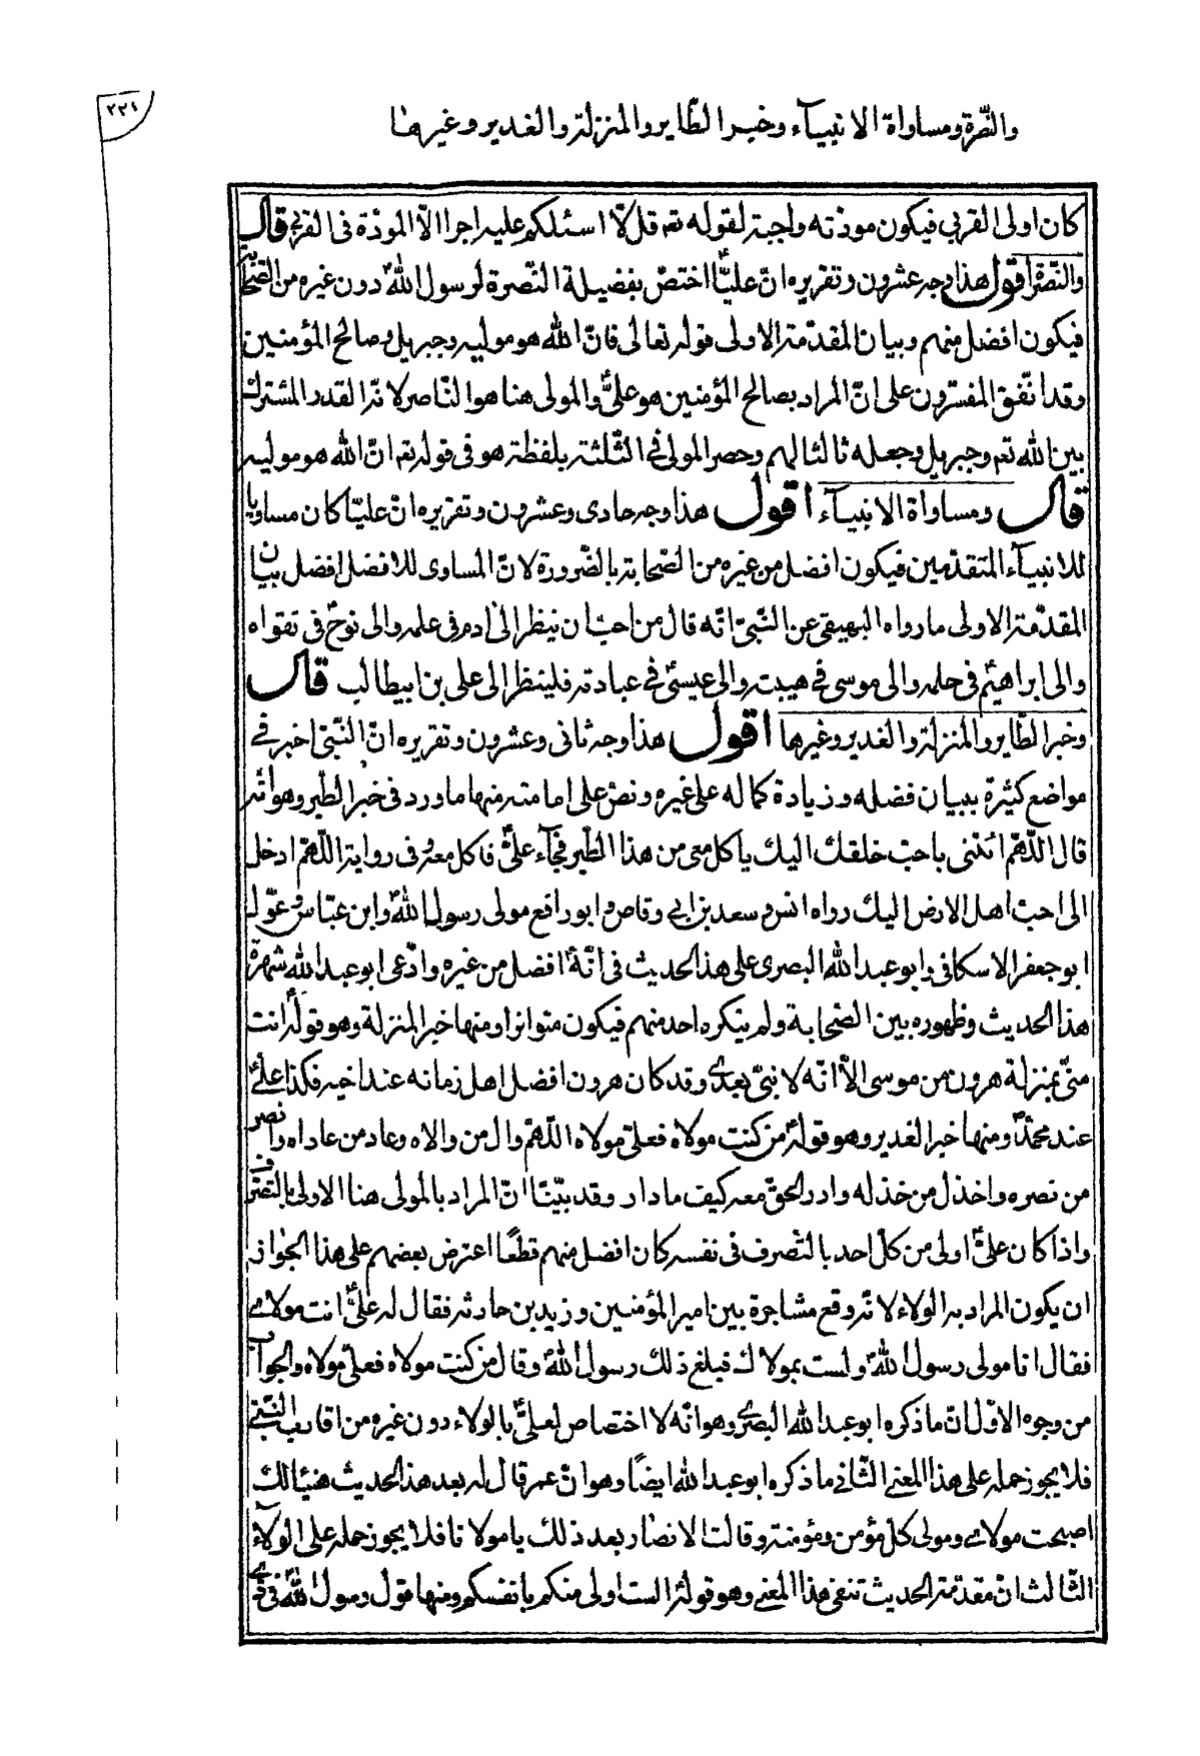 ٢٢١
والنصرة ومساواة الانبيآء وخبر الطّاير والمنزلة والغدير وغيرها
كان اولى القربى فيكون مودّته واجبة لقوله تع قل لّا اسئلكم عليه اجرا الّا المودّة فى القربى قال
والنّصرة اقول هذا وجه عشرون وتقريره انّ عليّا اختصّ بفضيلة النّصرة لرسول الله دون غيره من الصّحابة
فيكون افضل منهم وبيان المقدّمة الاولى قوله تعالى فانّ الله هو موليه وجبريل وصالح المؤمنين
وقد اتّفق المفسّرون على انّ المراد بصالح المؤمنين هو علىّ والمولى هنا هو النّاصر لانّه القدر المشترك
بين الله تع وجبريل وجعله ثالثا لهم وحصر المولى فى الثّلثة بلفظة هو فى قوله تع انّ الله هو موليه
قال ومساواة الانبيآء اقول هذا وجه حادى وعشرون وتقريره انّ عليّا كان مساويا
للانبيآء المتقدّمين فيكون افضل من غيره من الصّحابة بالضّرورة لانّ المساوى للافضل افضل بيان
المقدّمة الاولى ما رواه البهيقى عن النّبىّ انّه قال من احبّ ان ينظر الى ادم فى علمه والى نوح فى تقواه
والى ابراهيم فى حلمه والى موسى فى هيبته والى عيسى فى عبادته فلينظر الى على بن ابيطالب قال
وخبر الطّاير والمنزلة والغدير وغيرها اقول هذا وجه ثانى وعشرون وتقريره انّ النّبىّ اخبر فى
مواضع كثيرة ببيان فضله وزيادة كماله على غيره ونصّ على امامته منها ما ورد فى خبر الطّير وهو انّه
قال اللّهمّ ائتنى باحبّ خلقك اليك ياكل معى من هذا الطّير فجآء علىّ فاكل معه وفى رواية اللّهمّ ادخل
الى احبّ اهل الارض اليك رواه انس وسعد بن ابى وقاص وابو رافع مولى رسول الله وابن عبّاس وعوّل
ابو جعفر الاسكافى وابو عبد الله البصرى على هذا الحديث فى انّه افضل من غيره وادّعى ابو عبد الله شهرة
هذا الحديث وظهوره بين الصّحابة ولم ينكره احد منهم فيكون متواترا ومنها خبر المنزلة وهو قوله انت
منّى بمنزلة هرون من موسى الّا انّه لا نبىّ بعدى وقد كان هرون افضل اهل زمانه عند اخيه فكذا علىّ
عند محمّد ومنها خبر الغدير وهو قوله من كنت مولاه فعلىّ مولاه اللّهمّ وال من والاه وعاد من عاداه وانصر
من نصره واخذل من خذله وادر الحقّ معه كيف ما دار وقد بيّنّا انّ المراد بالمولى هنا الاولى بالتّصرّف
واذا كان علىّ اولى من كلّ احد بالتّصرف فى نفسه كان افضل منهم قطعًا اعترض بعضهم على هذا الجواز
ان يكون المراد به الولاء لانّه وقع مشاجرة بين امير المؤمنين وزيد بن حارثه فقال له علىّ انت مولاى
فقال انا مولى رسول الله ولست بمولاك فبلغ ذلك رسول الله وقال من كنت مولاه فعلىّ مولاه والجواب
من وجوه الاوّل انّ ما ذكره ابو عبد الله البصرى وهو انّه لا اختصاص لعلىّ بالولاء دون غيره من اقارب النّبىّ
فلا يجوز حمله على هذا المعنى الثّانى ما ذكره ابو عبد الله ايضًا وهو انّ عمر قال له بعد هذا الحديث هنيئا لك
اصبحت مولاى ومولى كلّ مؤمن ومؤمنة وقالت الانصار بعد ذلك يا مولانا فلا يجوز حمله على الولاء
الثّالث انّ مقدّمة الحديث تنفى هذا المعنى وهو قوله الست اولى منكم بانفسكم ومنها قول رسول الله فى